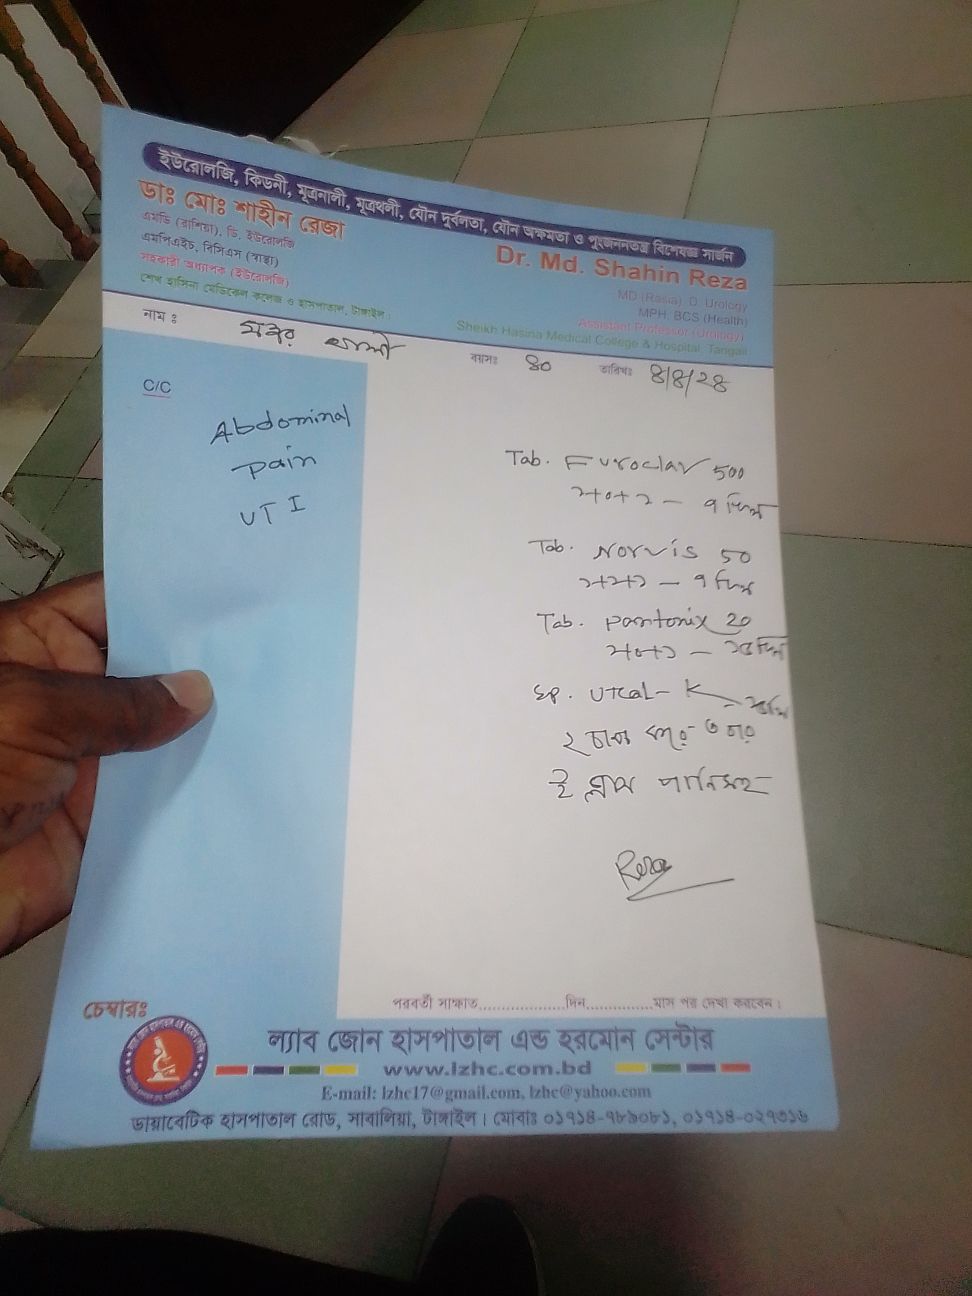 ইউরোলজি, কিডনী, মূত্রনালী, মূত্রথলী, যৌন দুর্বলতা, যৌন অক্ষমতা ও পুংজননতন্ত্র বিশেষজ্ঞ সার্জন
ডাঃ মোঃ শাহীন রেজা
এমডি (রাশিয়া), ডি. ইউরোলজি
এমপিএইচ, বিসিএস (স্বাস্থ্য)
সহকারী অধ্যাপক (ইউরোলজি)
শেখ হাসিনা মেডিকেল কলেজ ও হাসপাতাল, টাঙ্গাইল।
Dr. Md. Shahin Reza
MD (Rasia), D. Urology
MPH, BCS (Health)
Assistant Professor (Urology)
Sheikh Hasina Medical College & Hospital, Tangail
নাম ঃ
বয়সঃ ৪০ তারিখঃ ৪/৪/২৪
C/C
Abdominal
pain
UTI
Tab. Furoclav 500
১+০+১ — ৭ দিন
Tab. Norvis 50
১+১+১ — ৭ দিন
Tab. Pantonix 20
১+০+১ —
Sp. UTCal-K
২ চামচ করে ৩ বার
ই গ্লাস পানিসহ
Reza
পরবর্তী সাক্ষাত..................দিন..............মাস পর দেখা করবেন।
চেম্বারঃ
ল্যাব জোন হাসপাতাল এন্ড হরমোন সেন্টার
www.lzhc.com.bd
E-mail: lzhc17@gmail.com, lzhc@yahoo.com
ডায়াবেটিক হাসপাতাল রোড, সাবালিয়া, টাঙ্গাইল। মোবাঃ ০১৭১৪-৭৮৯০৮১, ০১৭১৪-০২৭৩১৬